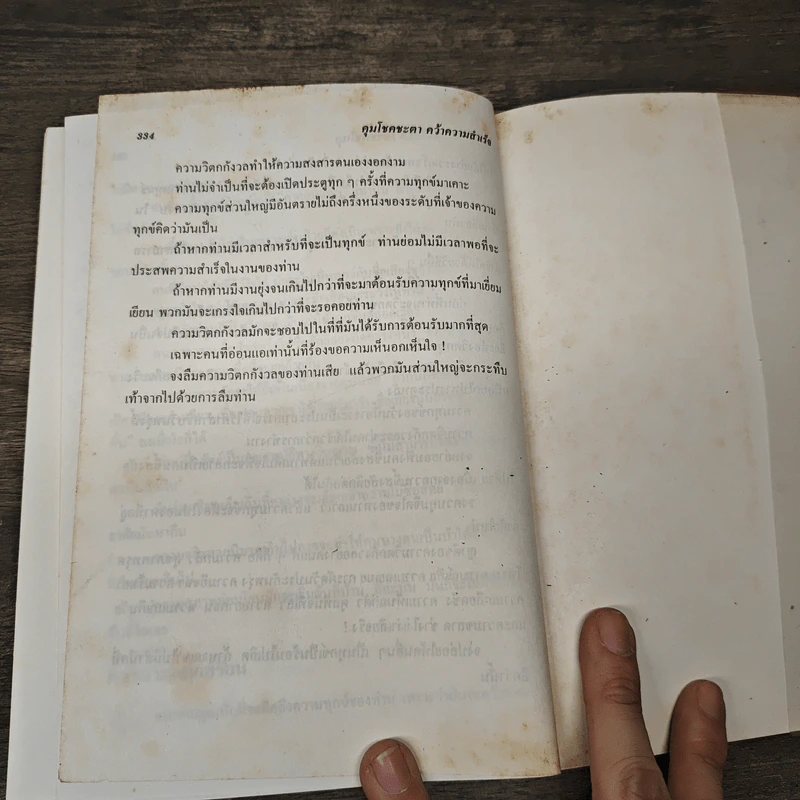 334
คุมโชคชะตา คว้าความสำเร็จ
ความวิตกกังวลทำให้ความสงสารตนเองงอกงาม
ท่านไม่จำเป็นที่จะต้องเปิดประตูทุก ๆ ครั้งที่ความทุกข์มาเคาะ
ความทุกข์ส่วนใหญ่มีอันตรายไม่ถึงครึ่งหนึ่งของระดับที่เจ้าของความ
ทุกข์คิดว่ามันเป็น
ถ้าหากท่านมีเวลาสำหรับที่จะเป็นทุกข์ ท่านย่อมไม่มีเวลาพอที่จะ
ประสพความสำเร็จในงานของท่าน
ถ้าหากท่านมีงานยุ่งจนเกินไปกว่าที่จะมาต้อนรับความทุกข์ที่มาเยี่ยม
เยียน พวกมันจะเกรงใจเกินไปกว่าที่จะรอคอยท่าน
ความวิตกกังวลมักจะชอบไปในที่ที่มันได้รับการต้อนรับมากที่สุด
เฉพาะคนที่อ่อนแอเท่านั้นที่ร้องขอความเห็นอกเห็นใจ !
จงลืมความวิตกกังวลของท่านเสีย แล้วพวกมันส่วนใหญ่จะกระทืบ
เท้าจากไปด้วยการลืมท่าน